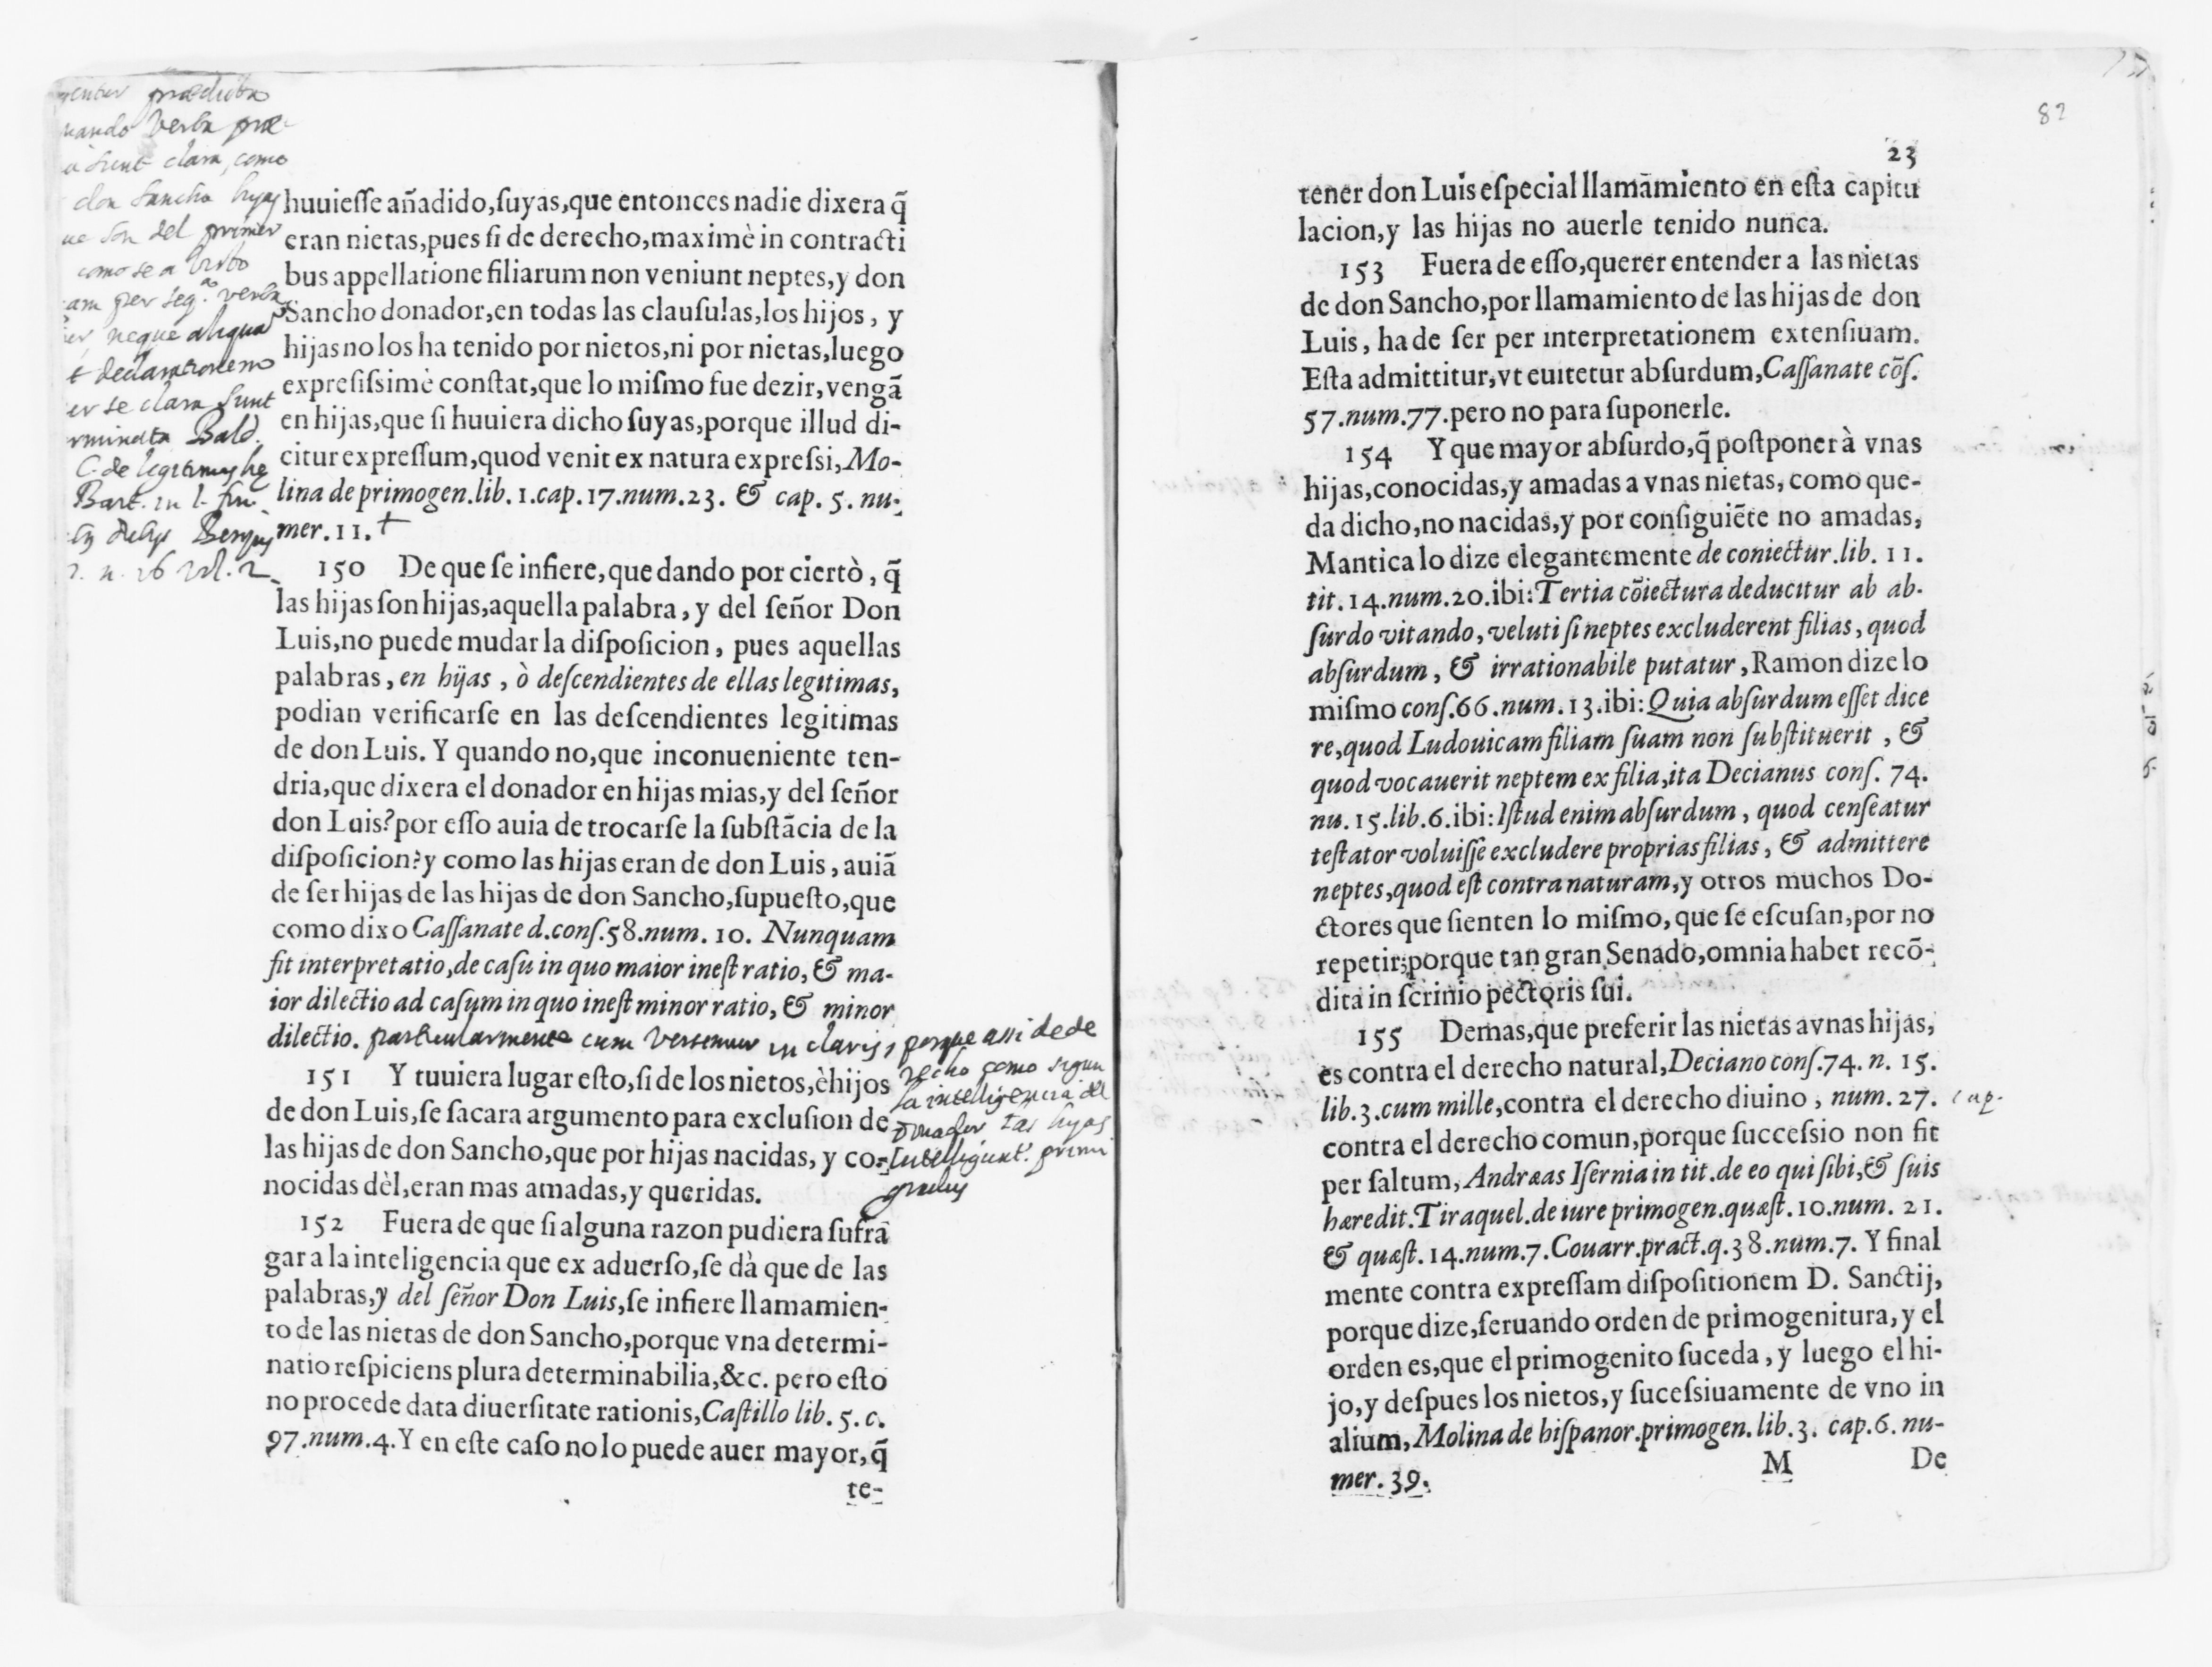 præedicta
verba præ-
sunt clara, como
don Sancho hijas
son del primer
como se a visto
per seg.ᵃᵒ verba
neque aliqua
declarationem
se clara sunt
Bald.
C. de legitimis he
Bart. in l. fin.
n. 26 vol. 2
huuieſſe añadido,ſuyas,que entonces nadie dixera q̃
eran nietas,pues ſi de derecho,maximè in contracti
bus appellatione filiarum non veniunt neptes,y don
Sancho donador,en todas las clauſulas,los hijos, y
hijas no los ha tenido por nietos,ni por nietas,luego
expreſiſsimè conſtat,que lo miſmo fue dezir,vengã
en hijas,que ſi huuiera dicho ſuyas,porque illud di-
citur expreſſum,quod venit ex natura expreſsi,Mo-
lina de primogen.lib. 1.cap.17.num.23. & cap. 5. nu-
mer.11.†
150 De que ſe infiere,que dando por ciertò, q̃
las hijas ſon hijas,aquella palabra, y del ſeñor Don
Luis,no puede mudar la diſpoſicion, pues aquellas
palabras, en hijas, ò deſcendientes de ellas legitimas,
podian verificarſe en las deſcendientes legitimas
de don Luis. Y quando no,que inconueniente ten-
dria,que dixera el donador en hijas mias,y del ſeñor
don Luis?por eſſo auia de trocarſe la ſubſtãcia de la
diſpoſicion?y como las hijas eran de don Luis, auiã
de ſer hijas de las hijas de don Sancho,ſupueſto,que
como dixo Caſſanate d.conſ.58.num. 10. Nunquam
fit interpretatio,de caſu in quo maior ineſt ratio, & ma-
ior dilectio ad caſum in quo ineſt minor ratio, & minor
dilectio. particularmente cum versemur in claris, porque assi de de
recho como segun
la intelligencia del
Donador las hijas
Intelligunt.ʳ primi
gradus
151 Y tuuiera lugar eſto,ſi de los nietos,è hijos
de don Luis,ſe ſacara argumento para excluſion de
las hijas de don Sancho,que por hijas nacidas, y co-
nocidas dèl,eran mas amadas,y queridas.
152 Fuera de que ſi alguna razon pudiera ſufrã
gar a la inteligencia que ex aduerſo,ſe dà que de las
palabras,y del ſeñor Don Luis,ſe infiere llamamien-
to de las nietas de don Sancho,porque vna determi-
natio reſpiciens plura determinabilia,&c. pero eſto
no procede data diuerſitate rationis,Caſtillo lib. 5. c.
97.num.4.Y en eſte caſo no lo puede auer mayor,q̃
te-
82
23
tener don Luis eſpecial llamãmiento en eſta capitu
lacion,y las hijas no auerle tenido nunca.
153 Fuera de eſſo,querer entender a las nietas
de don Sancho,por llamamiento de las hijas de don
Luis, ha de ſer per interpretationem extenſiuam.
Eſta admittitur,vt euitetur abſurdum,Caſſanate cõſ.
57.num.77.pero no para ſuponerle.
154 Y que mayor abſurdo,q̃ poſtponer à vnas
hijas,conocidas,y amadas a vnas nietas, como que-
da dicho,no nacidas,y por conſiguiẽte no amadas,
Mantica lo dize elegantemente de coniectur.lib. 11.
tit.14.num.20.ibi:Tertia cõiectura deducitur ab ab-
ſurdo vitando,veluti ſi neptes excluderent filias, quod
abſurdum, & irrationabile putatur,Ramon dize lo
miſmo conſ.66.num.13.ibi:Quia abſurdum eſſet dice
re,quod Ludouicam filiam ſuam non ſubſtituerit, &
quod vocauerit neptem ex filia,ita Decianus conſ. 74.
nu.15.lib.6.ibi:Iſtud enim abſurdum, quod cenſeatur
teſtator voluiſſe excludere proprias filias, & admittere
neptes,quod eſt contra naturam,y otros muchos Do-
ctores que ſienten lo miſmo,que ſe eſcuſan,por no
repetir;porque tan gran Senado,omnia habet recõ-
dita in ſcrinio pectoris ſui.
155 Demas,que preferir las nietas a vnas hijas,
es contra el derecho natural,Deciano conſ.74. n. 15.
lib.3.cum mille,contra el derecho diuino, num. 27. cap.
contra el derecho comun,porque ſucceſsio non fit
per ſaltum, Andræas Iſernia in tit.de eo qui ſibi,& ſuis
hæredit.Tiraquel.de iure primogen.quæſt.10.num. 21.
& quæſt.14.num.7.Couarr.pract.q.38.num.7. Y final
mente contra expreſſam diſpoſitionem D. Sanctij,
porque dize,ſeruando orden de primogenitura,y el
orden es,que el primogenito ſuceda,y luego el hi-
jo,y deſpues los nietos,y ſuceſsiuamente de vno in
alium,Molina de hiſpanor.primogen.lib.3. cap.6. nu-
mer.39.
M De